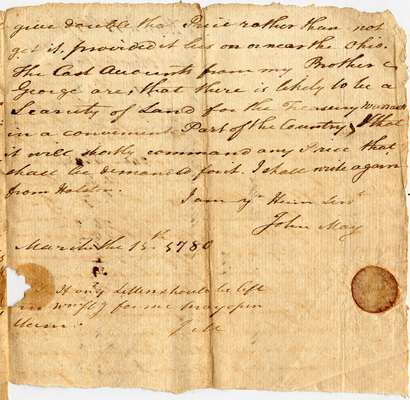 give double that Price rather than not
get it, provided it lies on or near the Ohio.
The Last Accounts from my Brother
George are, that there is likely to be a
Scarcity of Land for the Treasury Warrants
in a convenient Part of the Country, & that
it will shortly command any Price that
shall be demanded for it. I shall write again
from Holston.
I am yr Hum Servt
John May
March the 15th 1780
If any Letters should be left
in for me pray open
them.
J M